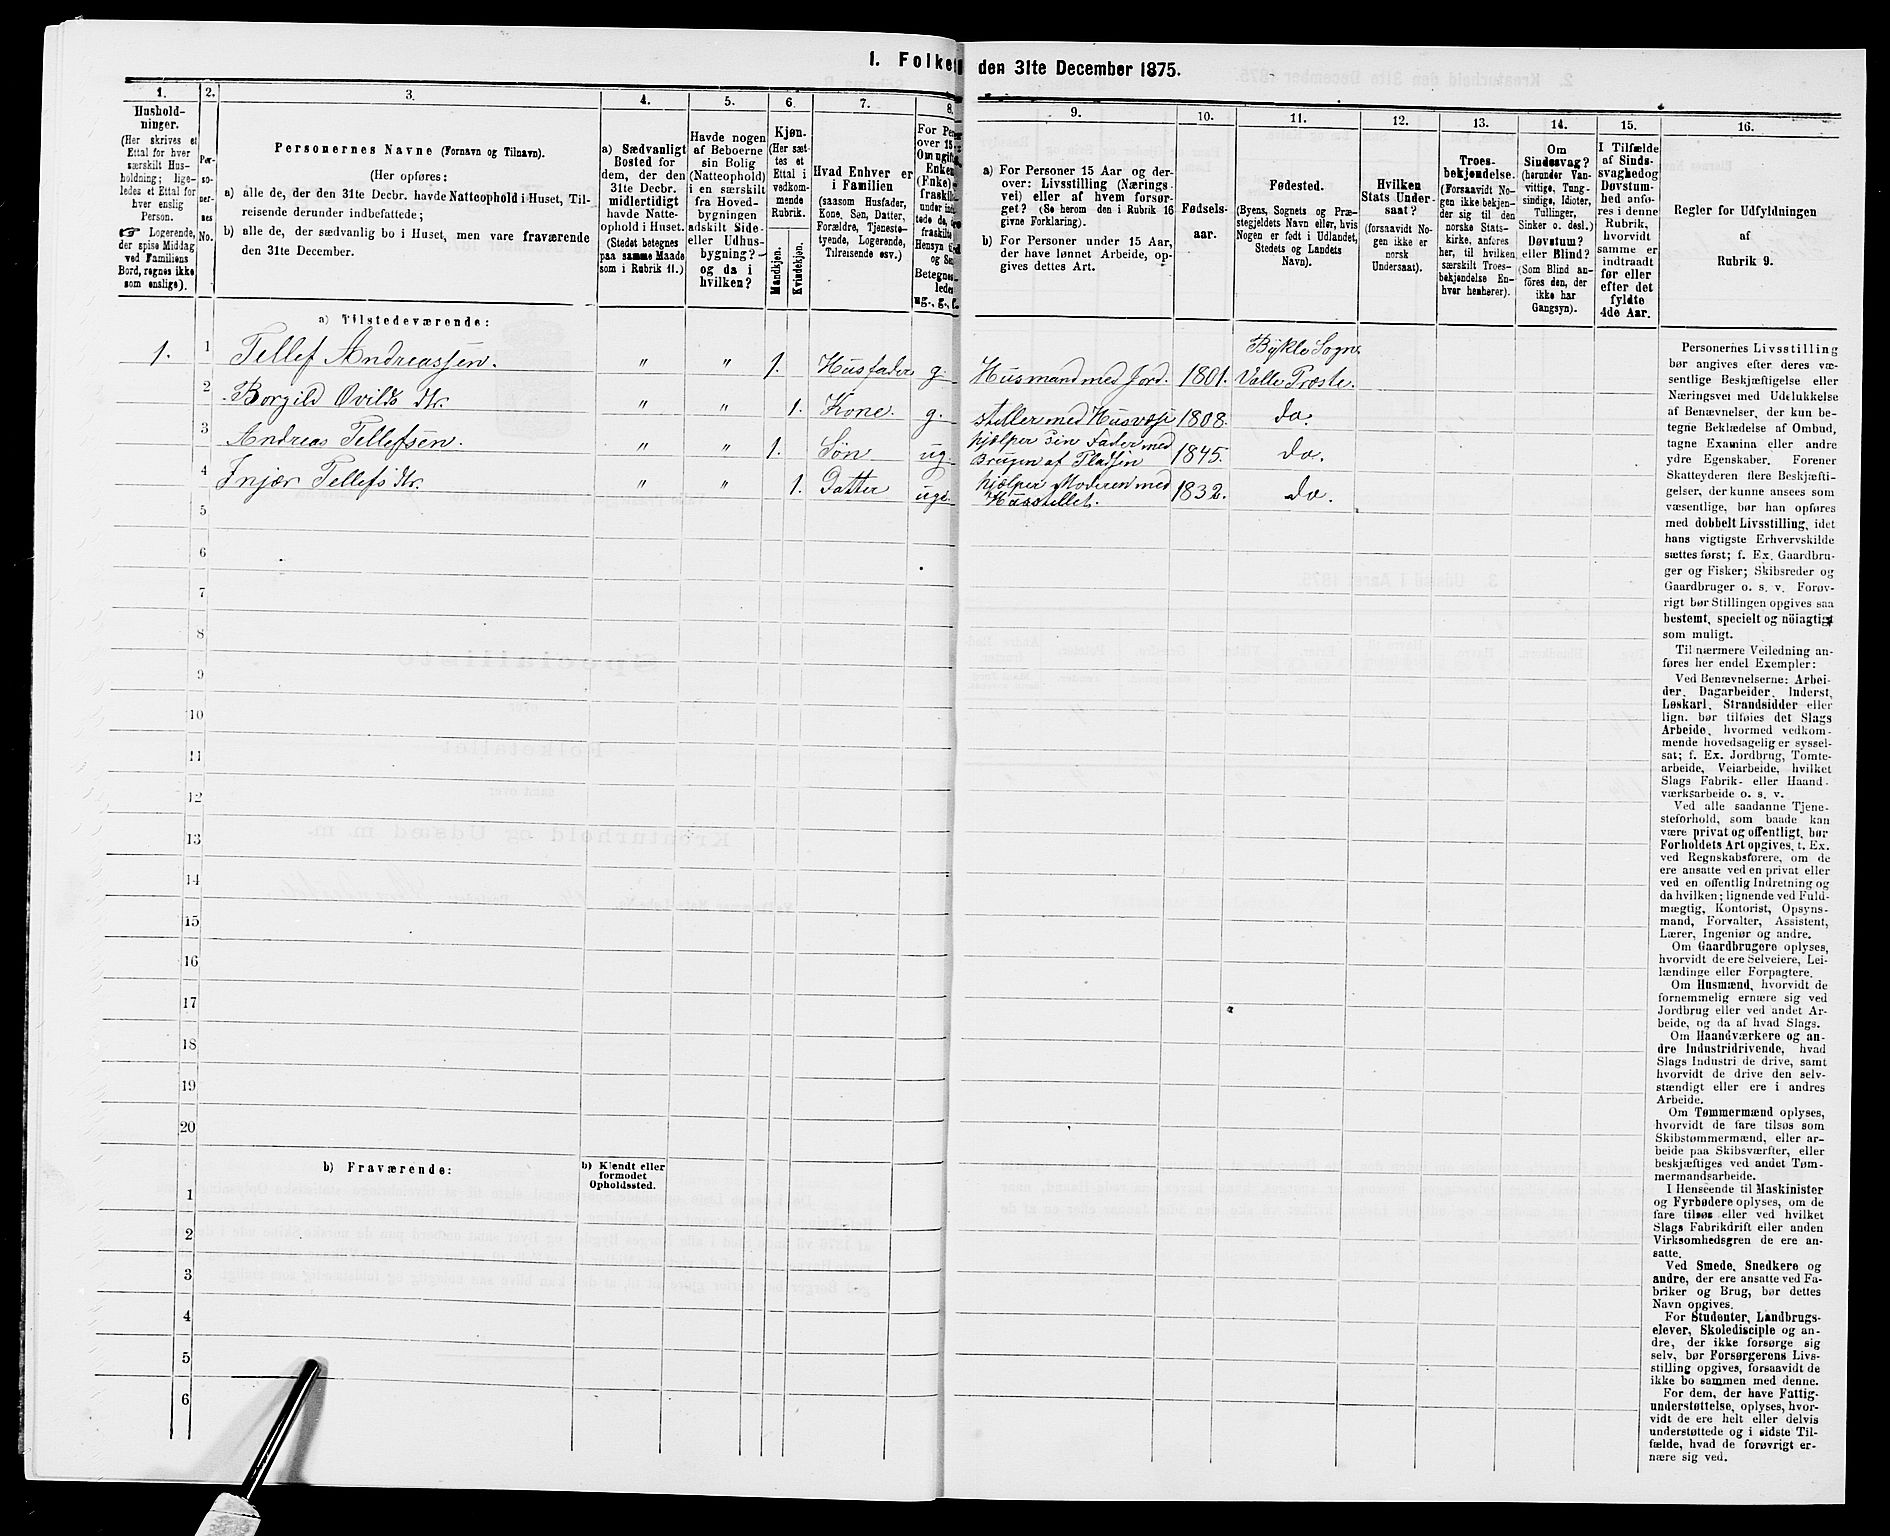 1. Folket
den 31te December 1875.
1.
2.
3.
4.
5.
6.
7.
8.
9.
10.
11.
12.
13.
14.
15.
16.
Hushold-
ninger.
(Her skrives et
Ettal for hver
særskilt Hus-
holdning; lige-
ledes et Ettal for
hver enslig
Person.
☞ Logerende,
der spise Middag
ved Familiens
Bord, regnes ikke
som enslige).
Per-
so-
ner-
nes
No.
Personernes Navne (Fornavn og Tilnavn).
(Her opføres:
a) alle de, der den 31te Decbr. havde Natteophold i Huset, Til-
reisende derunder indbefattede;
b) alle de, der sædvanlig bo i Huset, men vare fraværende
den 31te December.
a) Sædvanligt
Bosted for
dem, der den
31te Decbr.
midlertidigt
havde Natte-
ophold i Huset.
(Stedet betegnes
paa samme Maade
som i Rubrik 11.)
Havde nogen
af Beboerne
sin Bolig
(Natteophold)
i en særskilt
fra Hoved-
bygningen
adskilt Side-
eller Udhus-
bygning?
og da i
hvilken?
Kjøn.
(Her sæt-
tes et
Ettal i
vedkom-
mende
Rubrik.
Mandkjøn.
Kvindekjøn.
Hvad Enhver er
i Familien
(saasom Husfader,
Kone, Søn, Datter,
Forældre, Tjeneste-
tyende, Logerende,
Tilreisende osv.)
For Per
over 15
Om ugift
Enken
(Fnke)
fraskilt
under ind
tede de,
fraskilte
Hensyn t
og Se
Betegnes
ledes
ug., g., f.
a) For Personer 15 Aar og der-
over: Livsstilling (Nærings-
vei) eller af hvem forsør-
get? (Se herom den i Rubrik 16
givne Forklaring).
b) For Personer under 15 Aar,
der have lønnet Arbeide, op-
gives dettes Art.
Fødsels-
aar.
Fødested.
(Byens, Sognets og Præ-
stegjeldets Navn eller, hvis
Nogen er født i Udlandet,
Stedets og Landets
Navn).
Hvilken
Stats Under-
saat?
(forsaavidt No-
gen ikke er
norsk
Undersaat).
Troes-
bekjendelse.
(Forsaavidt No-
gen ikke bekjen-
der sig til den
norske Stats-
kirke, anføres
her, til hvilken
særskilt Troes-
bekjendelse En-
hver henhører).
Om
Sindssvag?
(herunder Van-
vittige, Tung-
sindige, Idioter,
Tullinger,
Sinker o. desl.)
Døvstum?
eller Blind?
(Som Blind an-
føres den, der
ikke har
Gangsyn).
I Tilfælde
af Sinds-
svaghed og
Døvstum-
hed anfø-
res i denne
Rubrik,
hvorvidt
samme er
indtraadt
før eller
efter det
fyldte
4de Aar.
Regler for Udfyldningen
af
Rubrik 9.
a) Tilstedeværende:
1. 1 Tellef Andreassen. " " 1. Husfader g. Husmand med Jord. 1801. Bykle Sogn Valle Præste.
2 Borgild Ovilds Dtr. " " 1. Kone. g. steller med Husvæs 1808. do.
3 Andreas Tellefsen. " " 1. Søn ug. hjælper sin Fader med Brugen af Pladsen 1845. do.
4 Injær Tellefs Dtr. " " 1. Datter ug. hjælper Moderen med Husstellet. 1832. do.
5
6
7
8
9
10
11
12
13
14
15
16
17
18
19
20
b) Fraværende:
b) Kjendt eller
formodet
Opholdssted.
1
2
3
4
5
6
Personernes Livsstilling
bør angives efter deres væ-
sentlige Beskjæftigelse eller
Næringsvei med Udelukkelse
af Benævnelser, der kun be-
tegne Beklædelse af Ombud,
tagne Examina eller andre
ydre Egenskaber. Forener
Skatteyderen flere Beskjæfti-
gelser, der kunne ansees som
væsentlige, bør han opføres
med dobbelt Livsstilling, idet
hans vigtigste Erhvervskilde
sættes først; f. Ex. Gaardbru-
ger og Fisker; Skibsreder og
Gaardbruger o. s. v. Forøv-
rigt bør Stillingen opgives saa
bestemt, specielt og nöiagtigt
som muligt.
Til nærmere Veiledning an-
føres her endel Exempler:
Ved Benævnelserne: Arbei-
der, Dagarbeider, Inderst,
Løskarl, Strandsidder eller
lign. bør tilføies det Slags
Arbeide, hvormed vedkom-
mende hovedsagelig er syssel-
sat; f. Ex. Jordbrug, Tomte-
arbeide, Veiarbeide, hvilket
Slags Fabrik- eller Haand-
værksarbeide o. s. v.
Ved alle saadanne Tjene-
steforhold, som baade kan
være privat og offentligt, bør
Forholdets Art opgives, t. Ex.
ved Regnskabsførere, om de
ere ansatte ved en privat eller
ved en offentlig Indretning og
da hvilken; lignende ved Fuld-
mægtig, Kontorist, Opsyns-
mand, Forvalter, Assistent,
Lærer, Ingeniør og andre.
Om Gaardbrugere oplyses,
hvorvidt de ere Selveiere, Lei-
lændinge eller Forpagtere.
Om Husmænd, hvorvidt de
fornemmelig ernære sig ved
Jordbrug eller ved andet Ar-
beide, og da af hvad Slags.
Om Haandværkere og an-
dre Industridrivende, hvad
Slags Industri de drive, samt
hvorvidt de drive den selv-
stændigt eller ere i andres
Arbeide.
Om Tømmermænd oplyses,
hvorvidt de fare tilsøs som
Skibstømmermænd, eller ar-
beide paa Skibsværfter, eller
beskjæftiges ved andet Tøm-
mermandsarbeide.
I Henseende til Maskinister
og Fyrbødere oplyses, om de
fare tilsøs eller ved hvilket
Slags Fabrikdrift eller anden
Virksomhedsgren de ere an-
satte.
Ved Smede, Snedkere og
andre, der ere ansatte ved Fa-
briker og Brug, bør dettes
Navn opgives.
For Studenter, Landbrugs-
elever, Skoledisciple og an-
dre, der ikke forsørge sig
selv, bør Forsørgerens Livs-
stilling opgives, forsaavidt de
ikke bo sammen med denne.
For dem, der have Fattig-
understøttelse, oplyses, hvor-
vidt de ere helt eller delvis
understøttede og i sidste Til-
fælde, hvad de forøvrigt er-
nære sig ved.